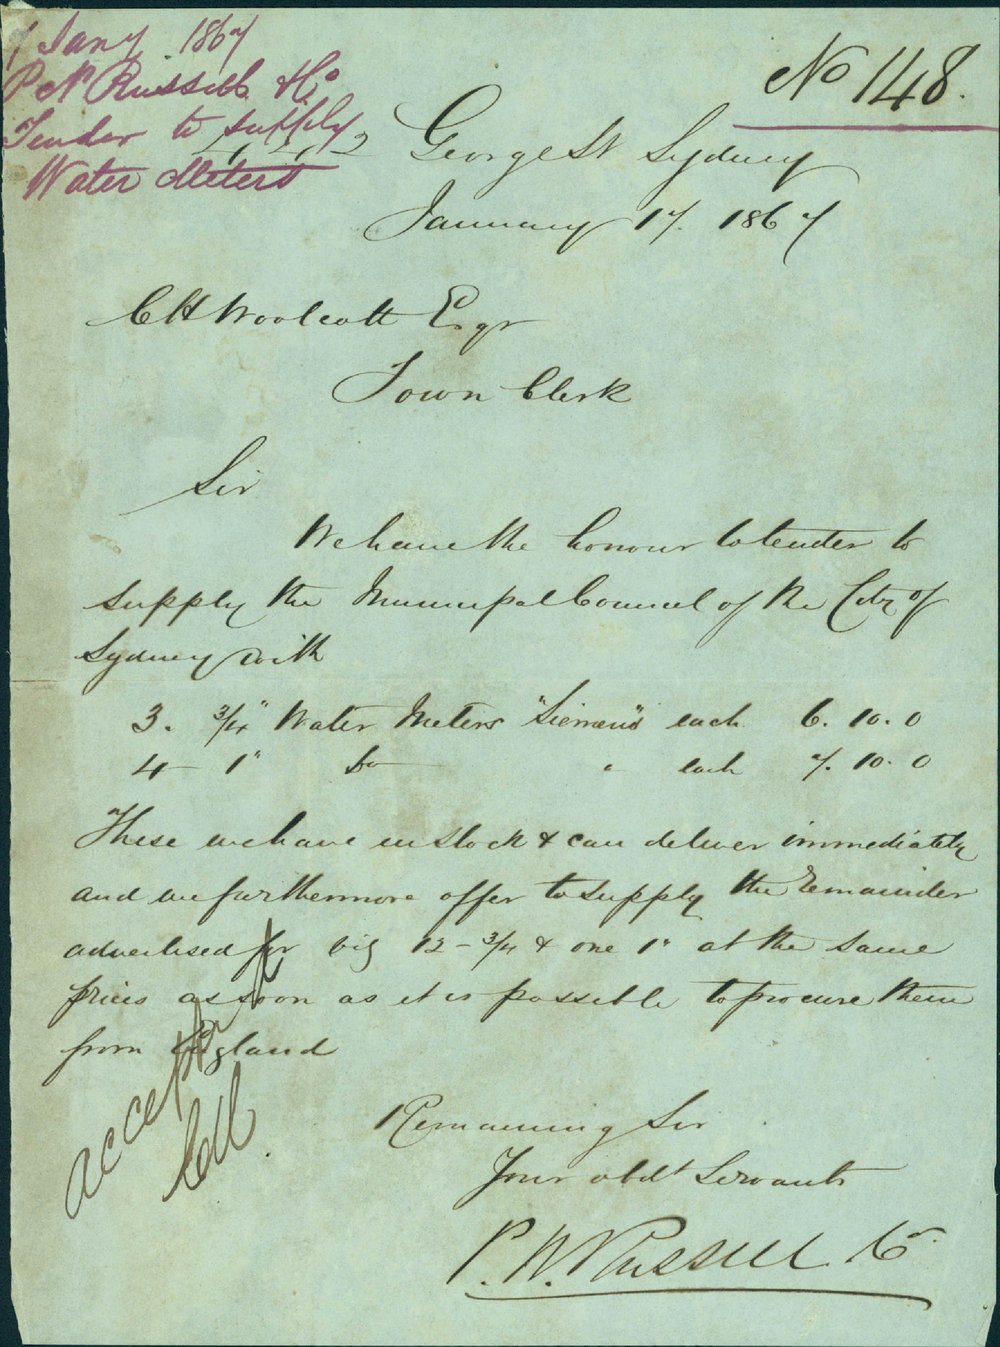 Jany 1867
P N Russell & Co
Tender to supply
Water Meters
No 148.
George St Sydney
January 17. 1867
C H Woolcott Esqr
Town Clerk
Sir
We have the honour to tender to
supply the Municipal Council of the City of
Sydney with
3. 3/4" Water Meters "Siemens" each 6. 10. 0
4 1" Do " each 7. 10. 0
These we have in stock & can deliver immediately
and we furthermore offer to supply the remainder
advertised for viz 12 - 3/4 & one 1" at the same
prices as soon as it is possible to procure them
from England
accepted
Remaining Sir
Your obdt Servants
P. N. Russell & Co